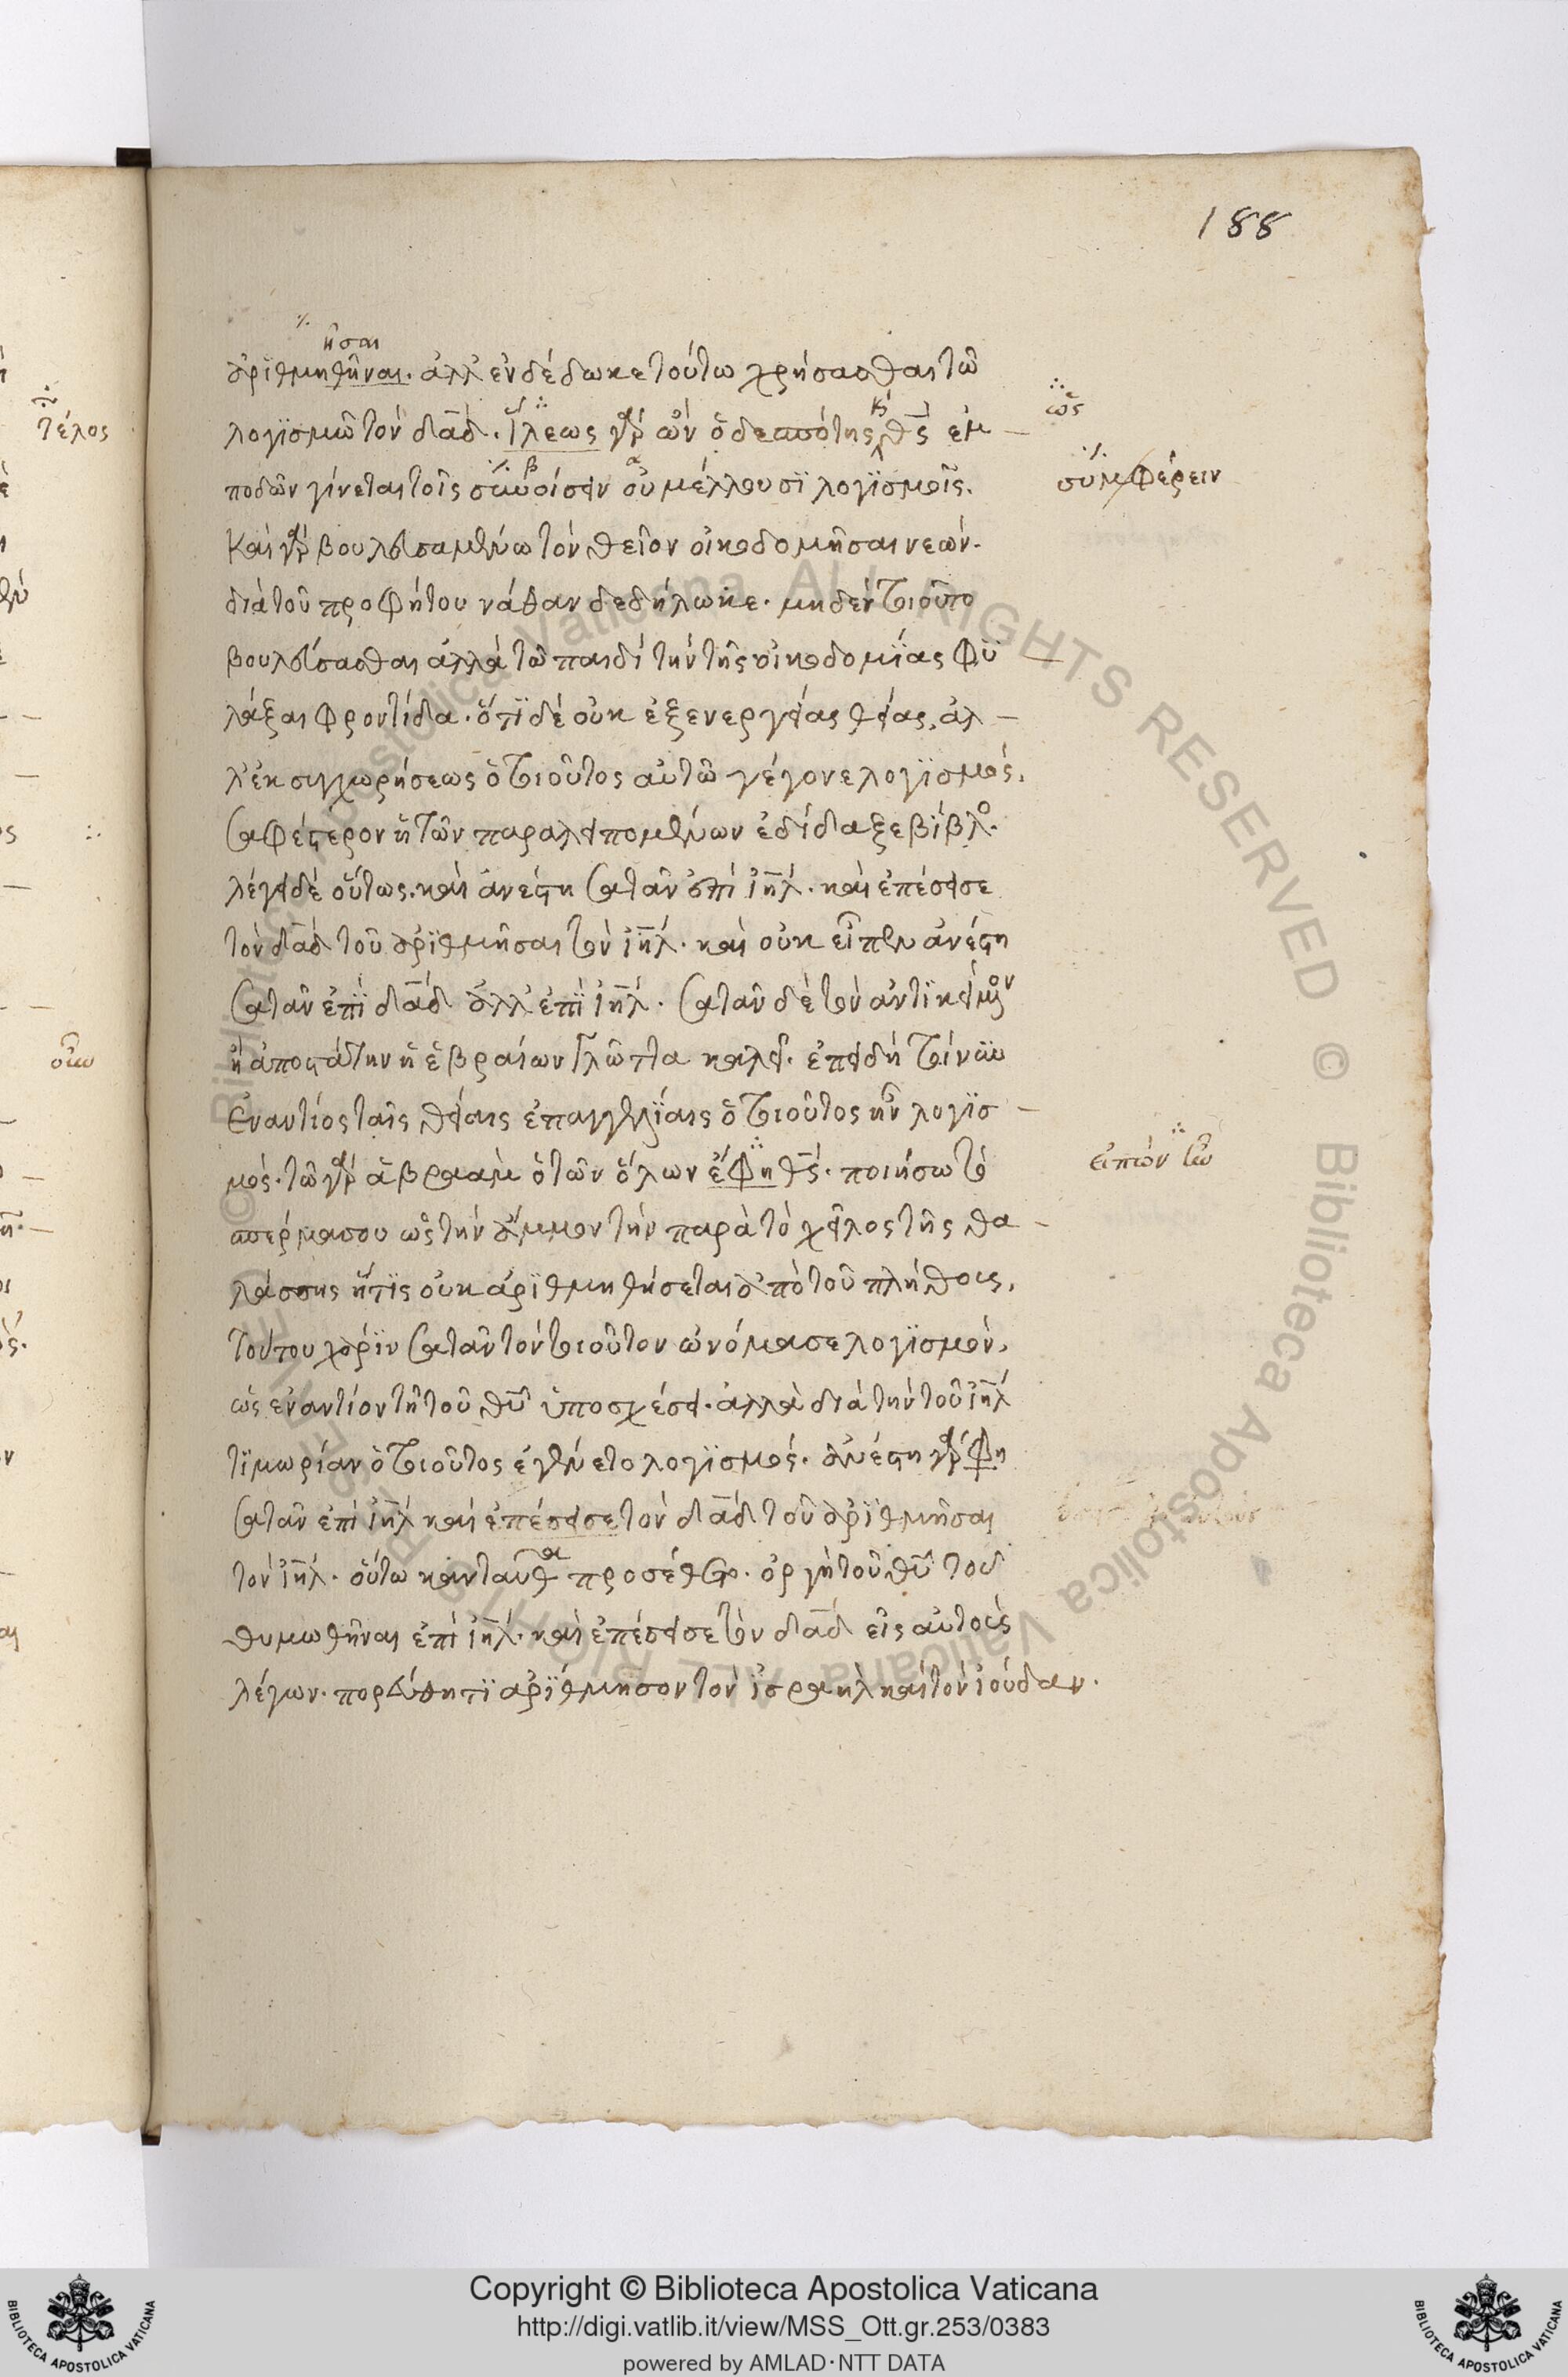 188
ῆσαι
ἀριθμηθῆναι. ἀλλ' ἐνδέδωκε τούτω χρήσασθαι τῶ
λογϊσμῶ τὸν δα̅δ. ἵλεως γὰρ ὢν ὁ δεσπότης κ̀ θς̅ ἐμ
ὡς
ποδὼν γίνεται τοῖς συνοίσειν οὐ μέλλουσϊ λογϊσμοῖς.
συμφέρειν
Καὶ γὰρ βουλευσαμένω τὸν θεῖον οἰκοδομῆσαι νεών.
διὰ τοῦ προφήτου νάθαν δεδήλωκε. μηδὲν τοιοῦτο
βουλεύσασθαι ἀλλὰ τῶ παιδὶ τὴν τῆς οἰκοδομίας φϋ
λάξαι φροντίδα. ὅτϊ δὲ οὐκ ἐξ ἐνεργείας θείας, ἀλ
λ' ἐκ συγχωρήσεως ὁ τοιοῦτος αὐτῶ γέγονε λογϊσμός.
σαφέστερον ἡ τῶν παραλειπομένων ἐδίδαξε βίβλος.
λέγει δὲ οὕτως. καὶ ἀνέστη σατὰν ἐπὶ ἰη̅λ. καὶ ἐπέσεισε
τὸν δα̅δ τοῦ ἀρϊθμῆσαι τὸν ἰη̅λ. καὶ οὐκ εἶπεν ἀνέστη
σατὰν ἐπϊ δα̅δ ἀλλ' ἐπϊ ἰη̅λ. σατὰν δὲ τὸν ἀντϊκείμενον
ἢ ἀποστάτην ἡ ἑβραίων γλῶττα καλεῖ. ἐπειδὴ τοίνυν
ἐναντίος ταῖς θείαις ἐπαγγελίαις ὁ τοιοῦτος ἦν λογϊσ
μός. τῶ γὰρ ἀβραὰμ ὁ τῶν ὅλων ἔφη θς̅. ποιήσω τὸ
εἰπὼν
σπέρμα σου ὡς τὴν ἄμμον τὴν παρὰ τὸ χεῖλος τῆς θα
λάσσης ἥτϊς οὐκ ἀρϊθμηθήσεται ἀπὸ τοῦ πλήθους,
τούτου χάρϊν σατὰν τὸν τοιοῦτον ὠνόμασε λογϊσμόν,
ὡς ἐναντίον τῆ τοῦ θυ̅ ὑποσχέσει. ἀλλὰ διὰ τὴν τοῦ ἰη̅λ
τϊμωρίαν ὁ τοιοῦτος ἐγένετο λογϊσμός. ἀνέστη γὰρ φη
σατὰν ἐπὶ ἰη̅λ καὶ ἐπέσεισε τὸν δα̅δ τοῦ ἀρϊθμῆσαι
τὸν ἰη̅λ. οὕτω κἀνταῦθα προσέθετο. ὀργὴ τοῦ θυ̅ τοῦ
θυμωθῆναι ἐπὶ ἰη̅λ. καὶ ἐπέσεισε τὸν δα̅δ εἰς αὐτοὺς
λέγων. πορεύθητϊ ἀρϊθμησον τὸν ἰσραὴλ καὶ τὸν ἰούδαν.
τέλος
Copyright © Biblioteca Apostolica Vaticana
http://digi.vatlib.it/view/MSS_Ott.gr.253/0383
powered by AMLAD·NTT DATA